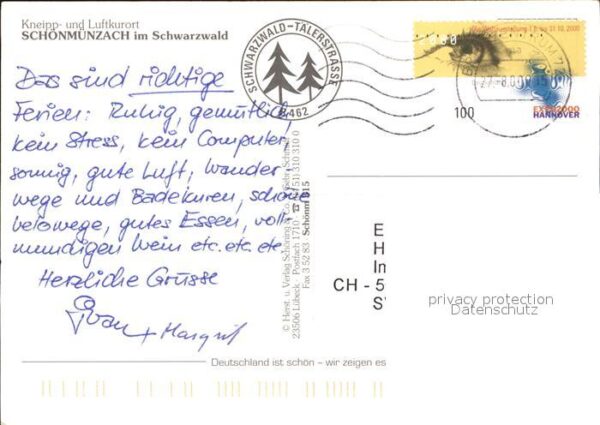 Kneipp- und Luftkurort
SCHÖNMÜNZACH im Schwarzwald
Das sind richtige
Ferien: Ruhig, gemütlich,
kein Stress, kein Computer,
sonnig, gute Luft, Wander
wege und Badekuren, schön
belowege, gutes Essen, voll-
mundigen Wein etc. etc. etc.
Herzliche Grüsse
+ Margrit
SCHWARZWALD-TÄLERSTRASSE
B 462
31.10.2000
100
EXPO2000
HANNOVER
© Herst. u. Verlag Schöning & Co. + Gebr. Schmidt
23506 Lübeck - Postfach 1710 (04 51) 310 310 0
Fax 3 52 83 Schönm 815
E
H
In
CH - 5
privacy protection
Datenschutz
Deutschland ist schön – wir zeigen es